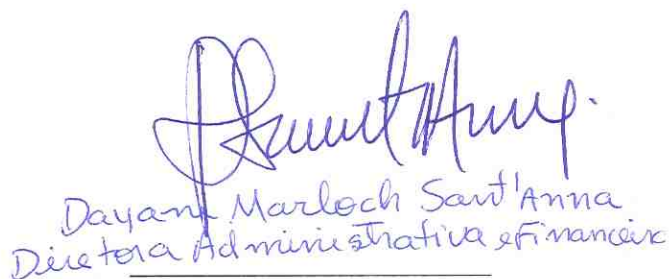 Dayane Marloch Sant'Anna
Diretora Administrativa e Financeira